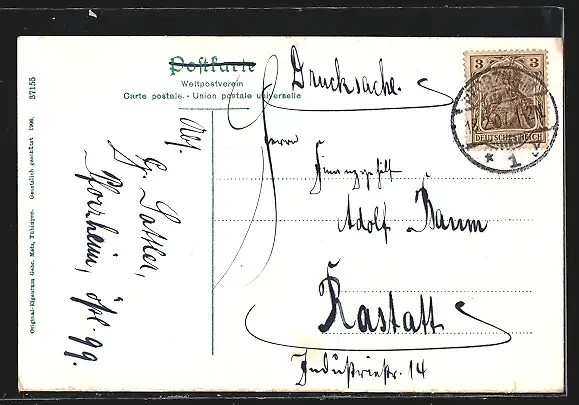 Postkarte
Weltpostverein
Carte postale. - Union postale universelle
Drucksache.
3 3
DEUTSCHES REICH
* 1
Herrn
Finanzgehilf
Adolf Baum
Rastatt
Industriestr. 14
Abs.
G. Sattler,
Pforzheim, östl. 99.
Original-Eigentum Gebr. Metz, Tübingen. Gesetzlich geschützt 1906. 37155